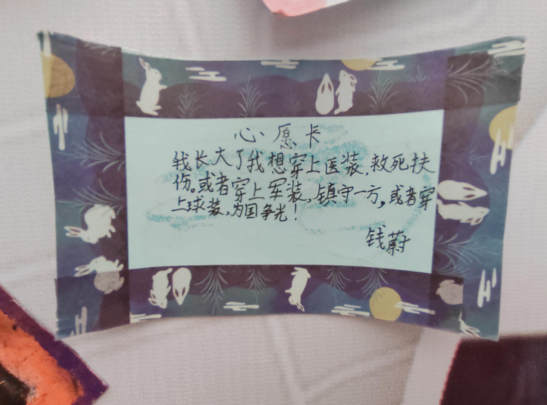 心愿卡
我长大了我想穿上医装,救死扶
伤。或者穿上军装,镇守一方,或者穿
上球装,为国争光!
钱蔚